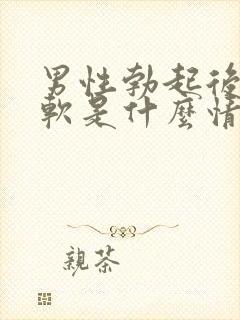 男性勃起後
軟是什麼情
親茶